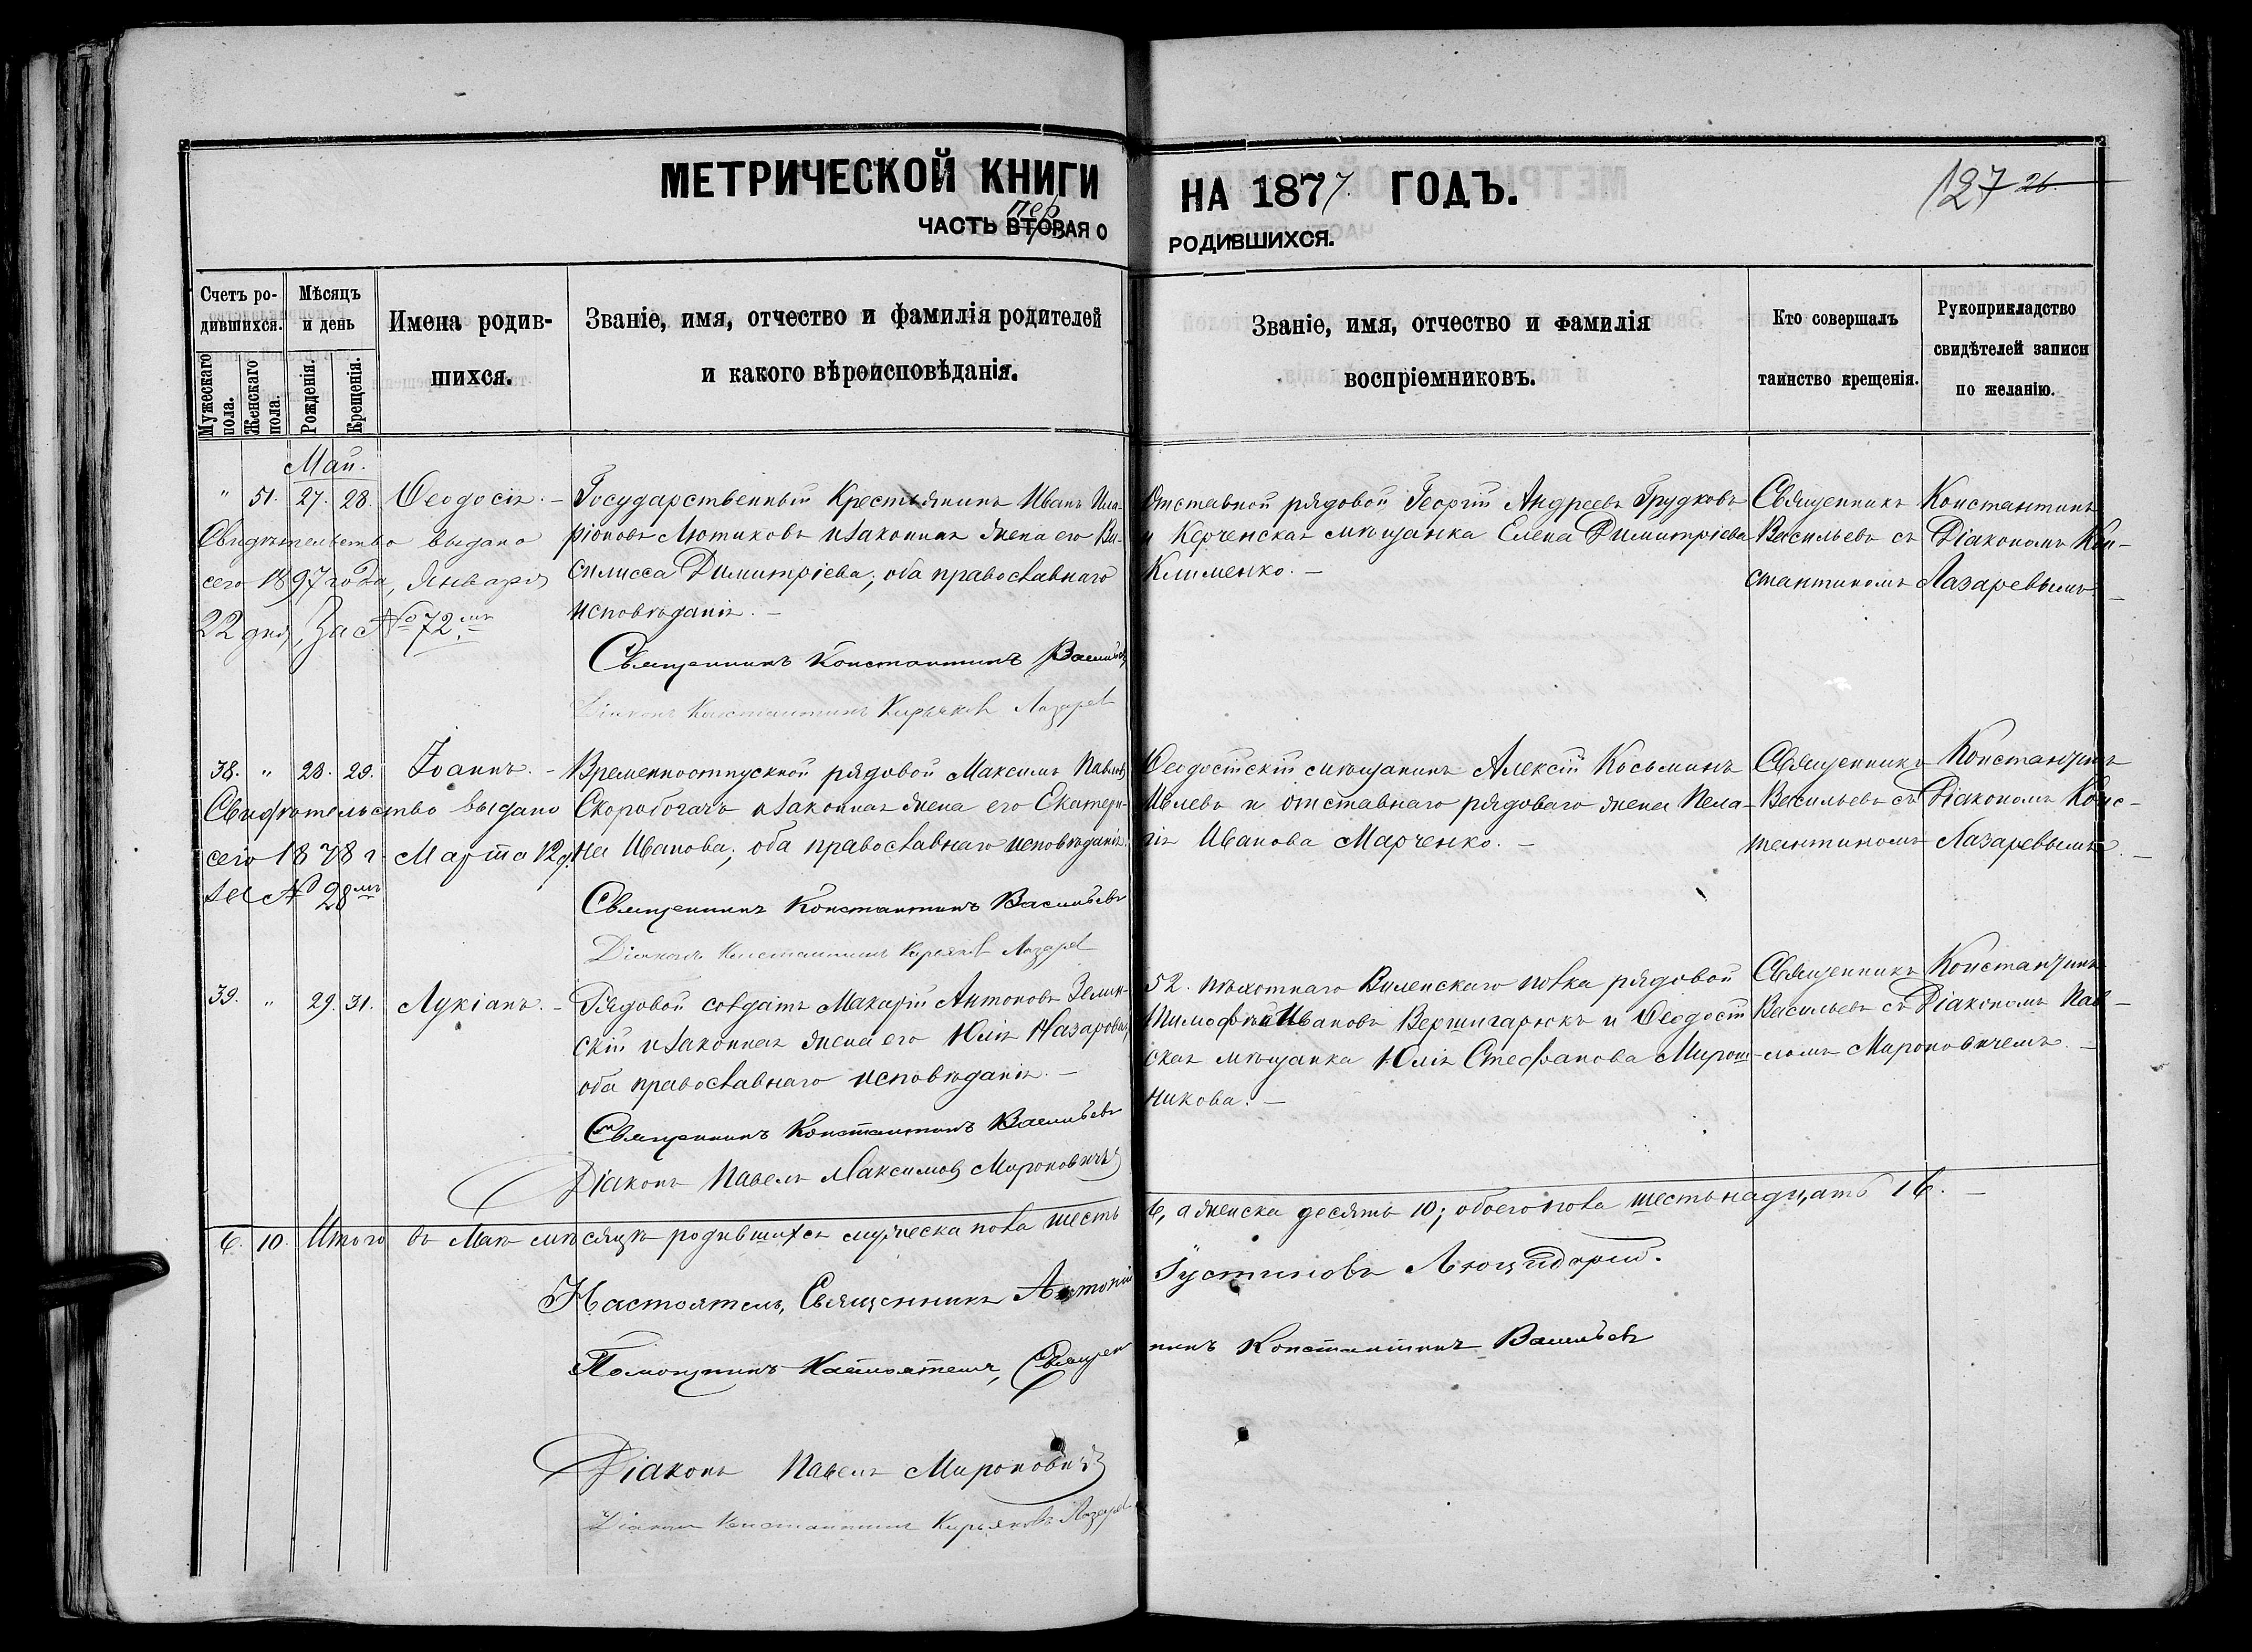 МЕТРИЧЕСКОЙ КНИГИ НА 1877 ГОДЪ.
127 26.
ЧАСТЬ ВТОРАЯ О РОДИВШИХСЯ.
пер
Счетъ ро-
дившихся.
Мужескаго пола.
Женскаго пола.
Мѣсяцъ
и день
Рожденія.
Крещенія.
Имена родив-
шихся.
Званіе, имя, отчество и фамилія родителей
и какого вѣроисповѣданія.
Званіе, имя, отчество и фамилія
воспріемниковъ.
Кто совершалъ
таинство крещенія.
Рукоприкладство
свидѣтелей записи
по желанію.
Май.
" 51. 27. 28. Ѳеодосія. –
Свидѣтельство выдано
сего 1897 года, Января
22 дня, За № 72мъ
Государственный Крестьянинъ Иванъ Ила-
ріоновъ Лютиковъ и законная жена его Ва-
силисса Димитріева; оба православнаго
исповѣданія. –
Священникъ Константинъ Васильевъ
Діаконъ Константинъ Кирьяковъ Лазаревъ
Отставной рядовой Георгій Андреевъ Грудковъ
и Керченская мѣщанка Елена Димитріева
Клименко. –
Священникъ Константинъ
Васильевъ съ Діакономъ Кон-
стантиномъ Лазаревымъ –
38. " 28. 29. Іоаннъ. –
Свидѣтельство выдано
сего 1878 г. Марта 12 д.
за № 28мъ
Временноотпускной рядовой Максимъ Павловъ
Скоробогачъ и законная жена его Екатери-
на Иванова; оба православнаго исповѣданія.
Священникъ Константинъ Васильевъ
Діаконъ Константинъ Кирьяковъ Лазаревъ
Ѳеодосійскій мѣщанинъ Алексій Косьминъ
Ивлевъ и отставнаго рядоваго жена Пела-
гія Иванова Марченко. –
Священникъ Константинъ
Васильевъ съ Діакономъ Конс-
тантиномъ Лазаревымъ. –
39. " 29. 31. Лукіанъ. –
Рядовой солдатъ Макарій Антоновъ Зелин-
скій и законная жена его Юлія Назарова,
оба православнаго исповѣданія. –
Священникъ Константинъ Васильевъ
Діаконъ Павелъ Максимовъ Мироновичъ
52. пѣхотнаго Виленскаго полка рядовой
Тимофей Ивановъ Вершигарюкъ и Ѳеодосій
ская мѣщанка Юлія Стефанова Мирош-
никова. –
Священникъ Константинъ
Васильевъ съ Діакономъ Пав-
ломъ Мироновичемъ. –
6. 10. Итого въ Маѣ мѣсяцѣ родившихся мужеска пола шесть 6, а женска десять 10; обоего пола шестьнадцать 16. –
Настоятель, Священникъ Антоній Іустиновъ
Помощникъ Настоятеля, Священникъ Константинъ Васильевъ
Діаконъ Павелъ Мироновичъ
Діаконъ Константинъ Кирьяковъ Лазаревъ